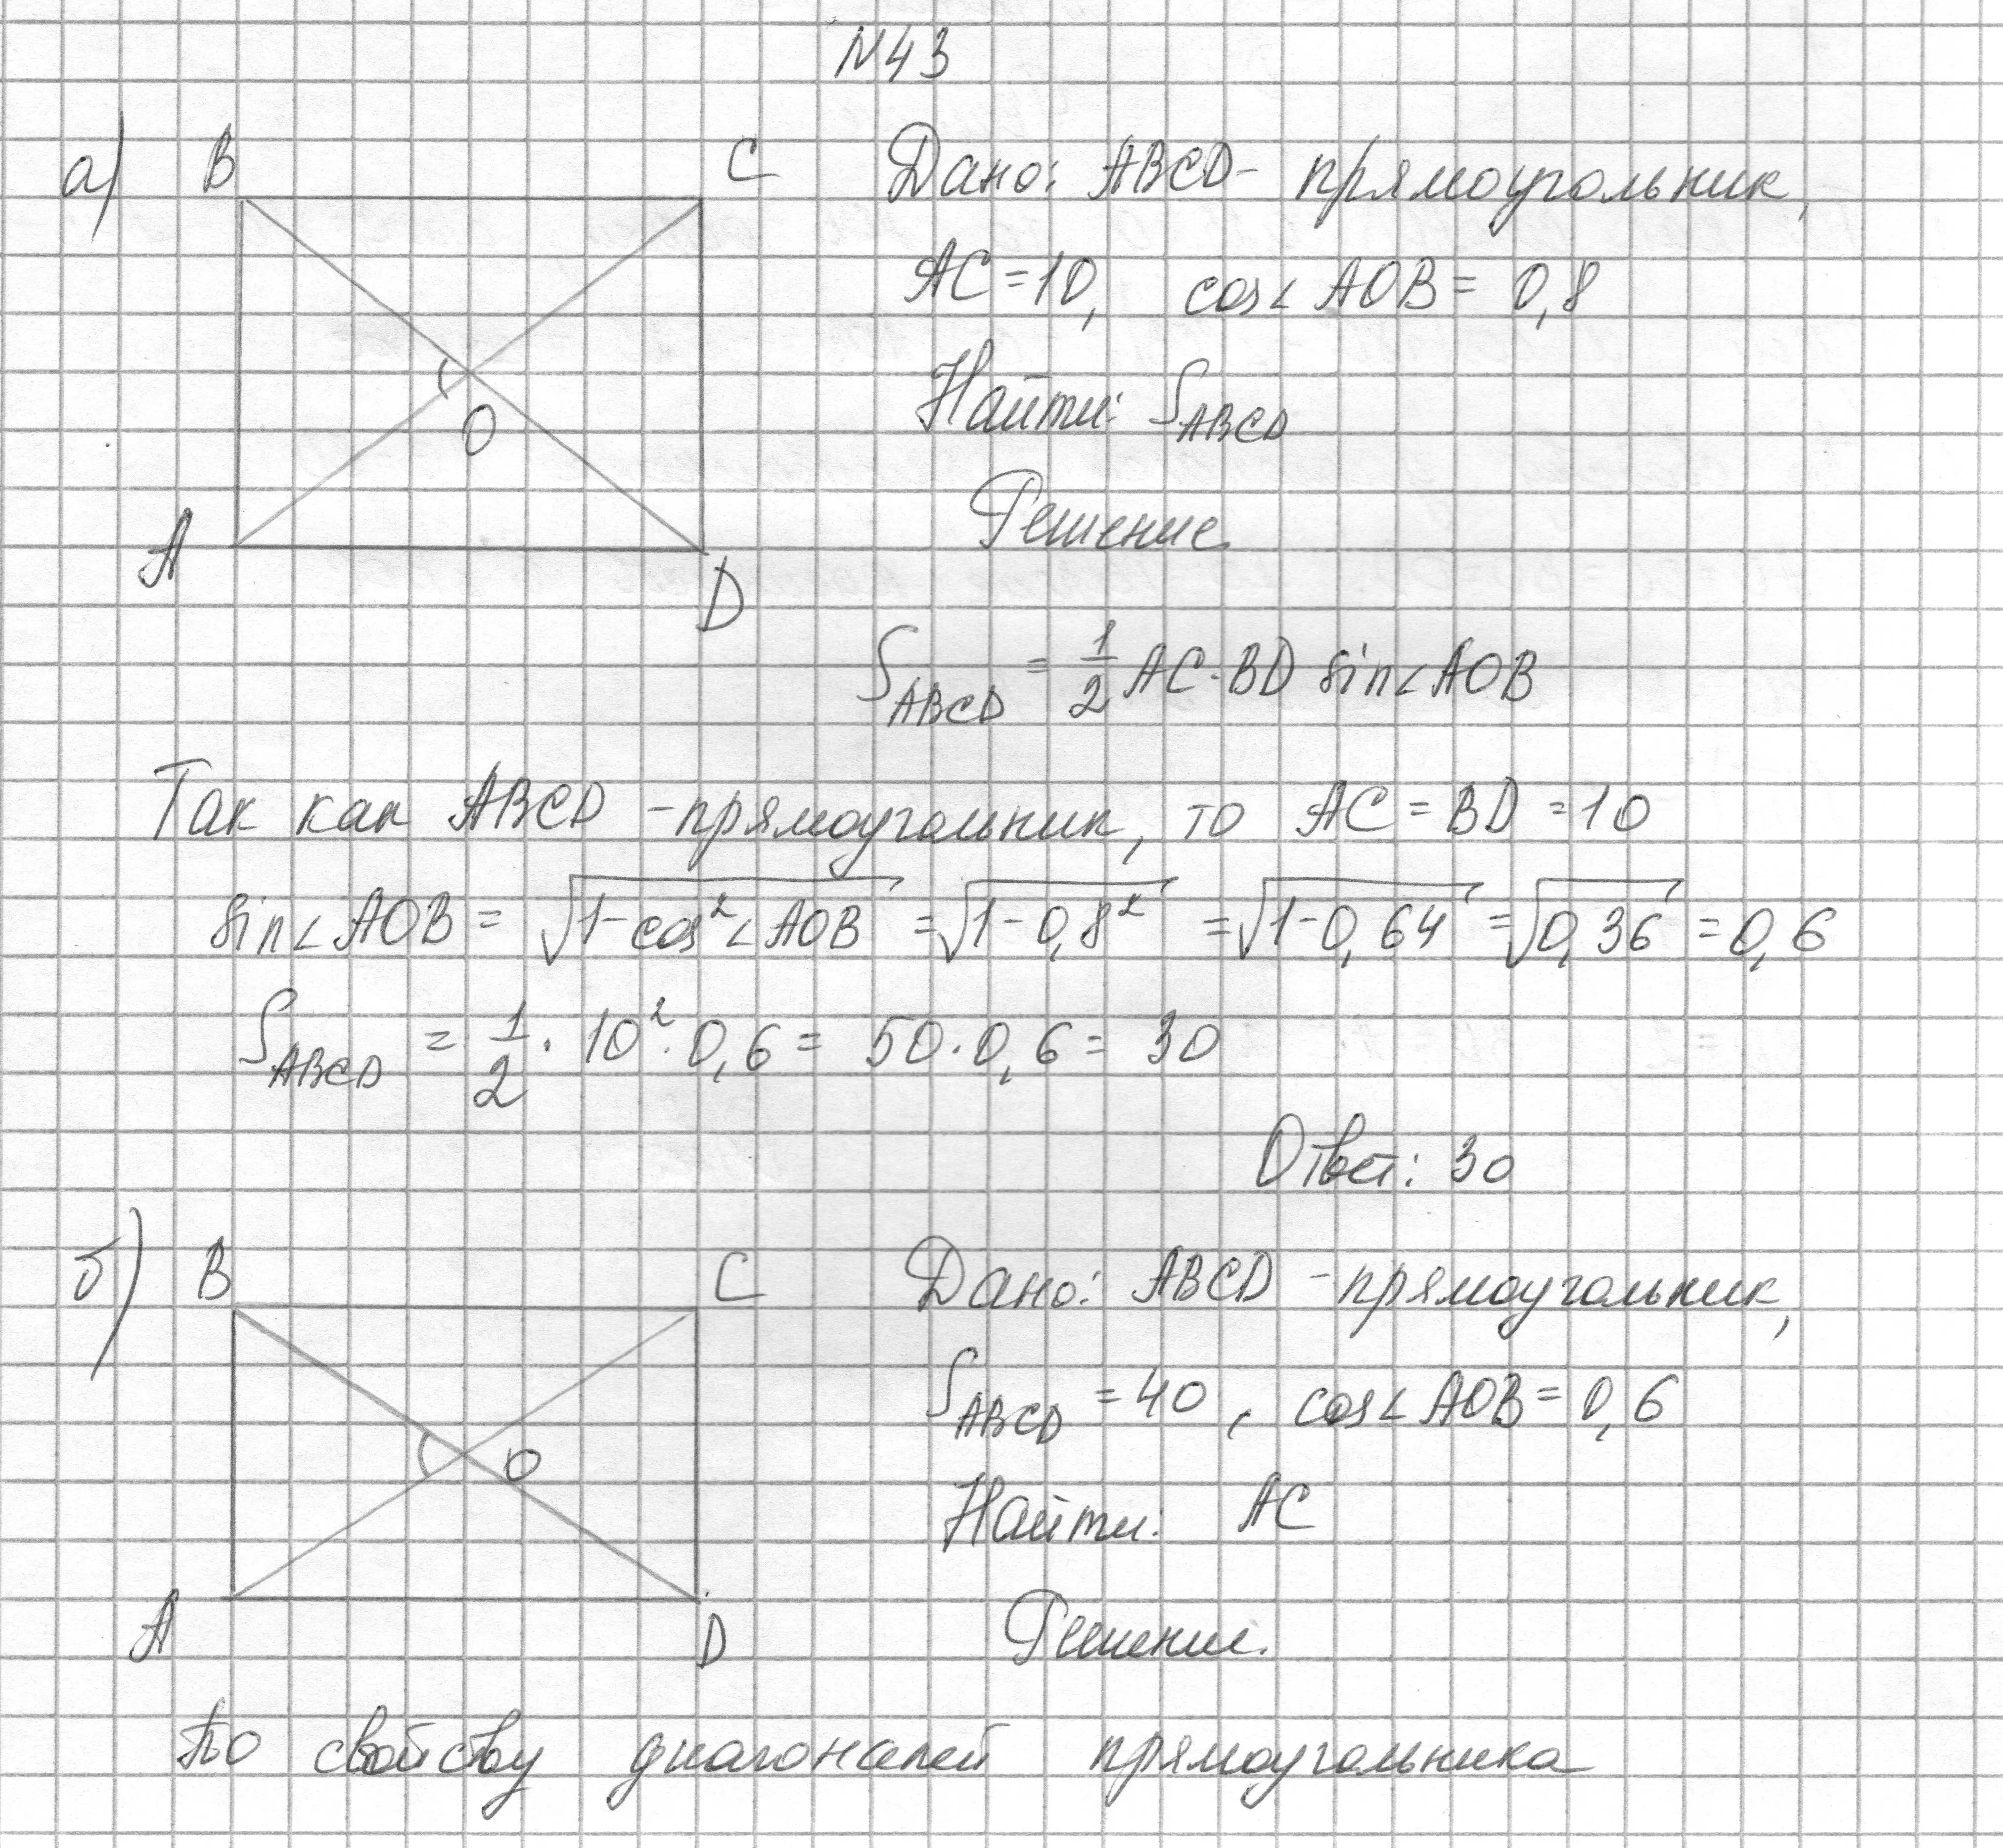 N43
а) B C
A D
O
Дано: ABCD- прямоугольник,
AC=10, cos∠AOB= 0,8
Найти: S_ABCD
Решение
S_ABCD = 1/2 AC·BD sin∠AOB
Так как ABCD -прямоугольник, то AC=BD=10
sin∠AOB= √(1-cos²∠AOB) =√(1-0,8²) =√(1-0,64) =√(0,36) =0,6
S_ABCD = 1/2 · 10²·0,6= 50·0,6= 30
Ответ: 30
б) B C
A D
O
Дано: ABCD -прямоугольник,
S_ABCD =40, cos∠AOB=0,6
Найти: AC
Решение.
По свойству диагоналей прямоугольника